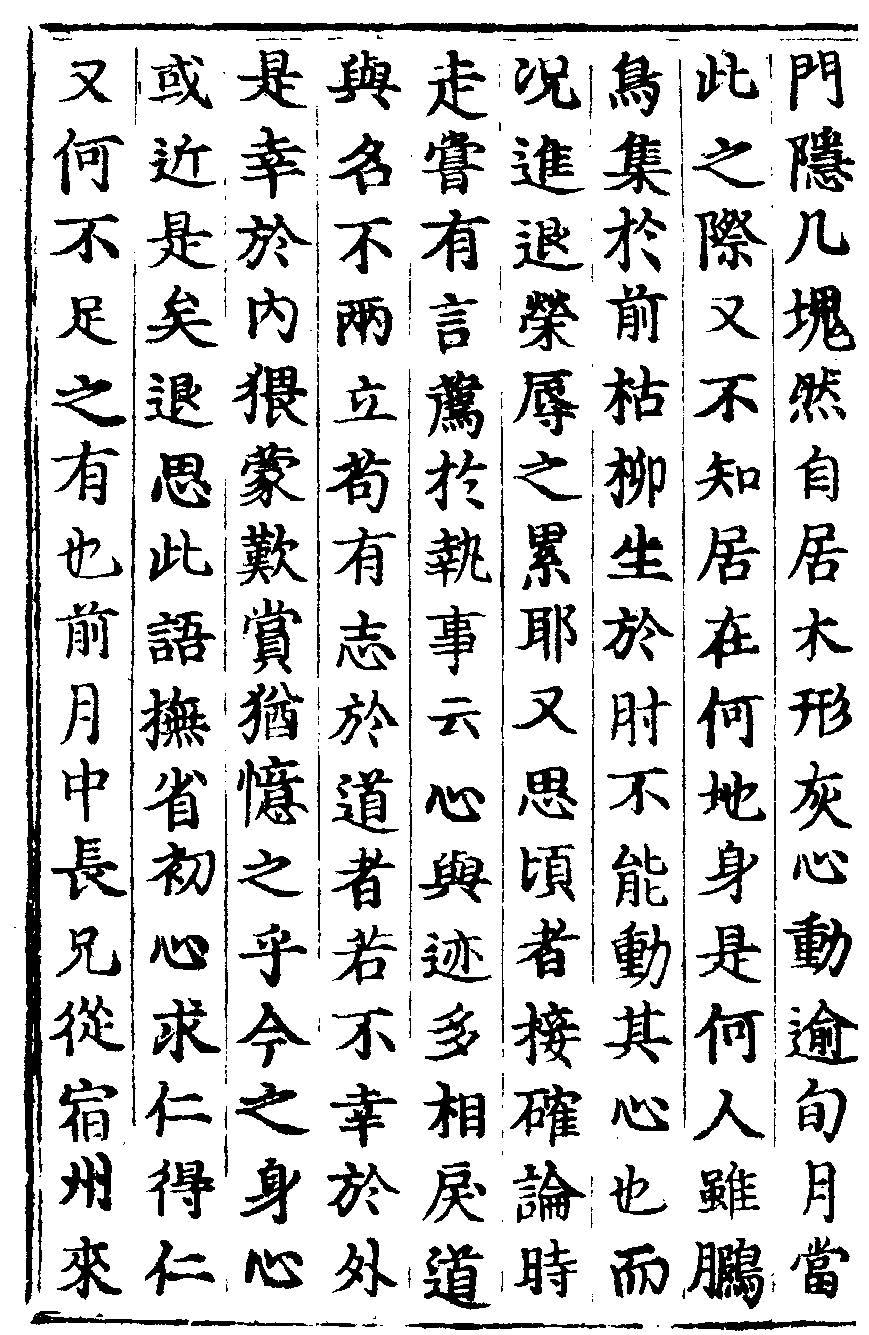 門隱几塊然自居木形灰心動逾旬月當
此之際又不知居在何地身是何人雖鵩
鳥集於前枯柳生於肘不能動其心也而
况進退榮辱之累耶又思頃者接確論時
走嘗有言薦於執事云心與迹多相戾道
與名不兩立苟有志於道者若不幸於外
是幸於內猥蒙歎賞猶憶之乎今之身心
或近是矣退思此語撫省初心求仁得仁
又何不足之有也前月中長兄從宿州來